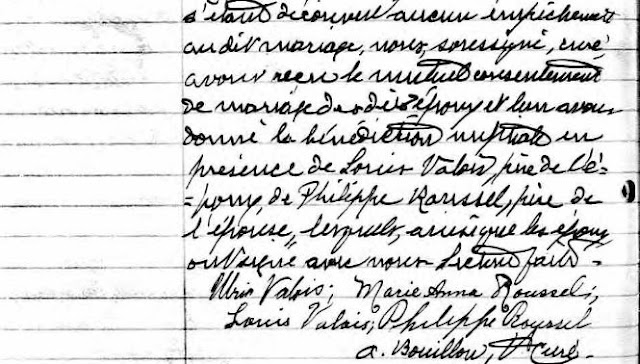 s'étant découvert aucun empêchement
au dit mariage, nous, soussigné, curé
avons reçu le mutuel consentement
de mariage des dits époux et leur avons
donné la bénédiction nuptiale en
présence de Louis Valois, père de l'é-
-poux, de Philippe Roussel, père de
l'épouse, lesquels, ainsi que les époux
ont signé avec nous. Lecture faite -
Valois; Marie Anna Roussel;
Louis Valois; Philippe Roussel
a. Bouillon, Ptre Curé.